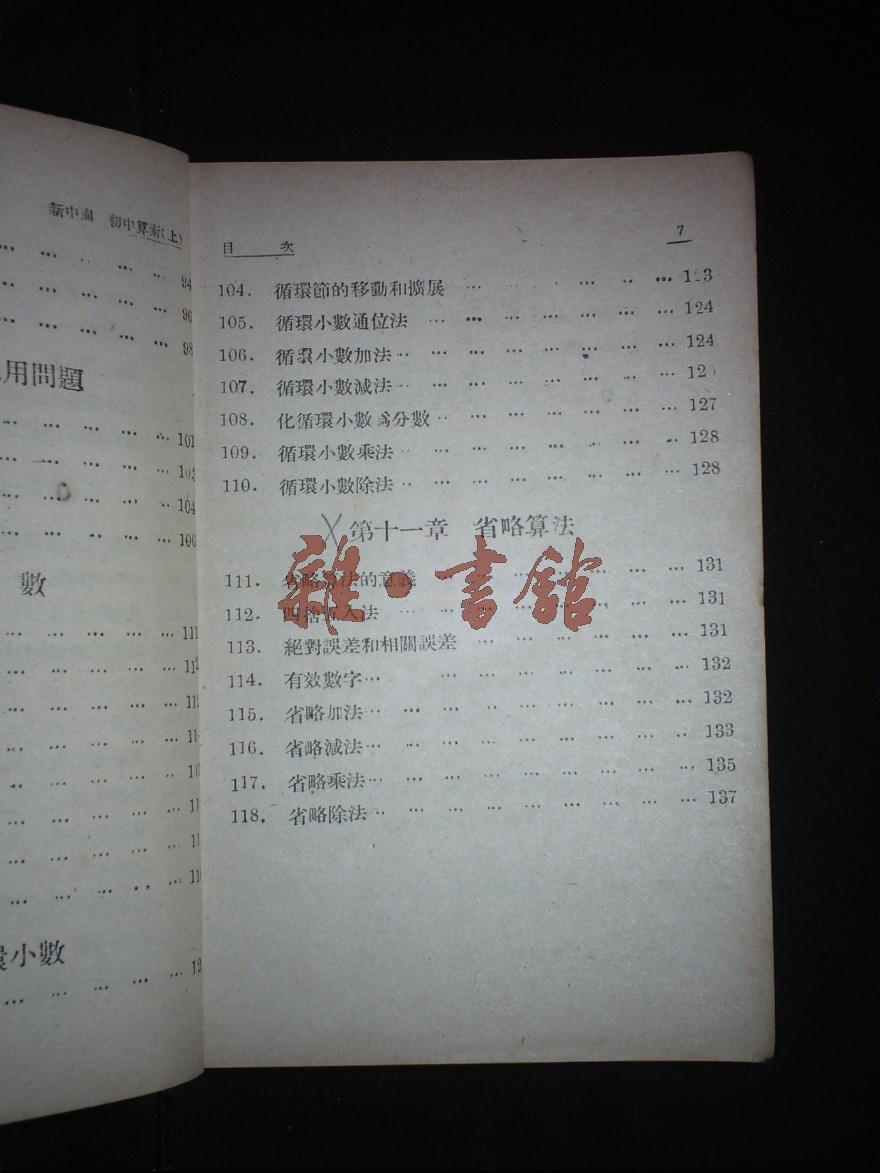 新中國 初中算術(上)
… … … … … 94
… … … … … 96
… … … … … 98
用問題
… … … … … 101
… … … … … 103
… … … … … 104
… … … … … 106
數
… … … … … 111
小數
目 次 7
104. 循環節的移動和擴展 … … … … … … 123
105. 循環小數通位法 … … … … … … … 124
106. 循環小數加法 … … … … … … … … 124
107. 循環小數減法 … … … … … … … …
108. 化循環小數爲分數 … … … … … … … 127
109. 循環小數乘法 … … … … … … … … 128
110. 循環小數除法 … … … … … … … … 128
第十一章 省略算法
111. 省略算法的意義 … … … … … … … 131
112. 四捨五入法 … … … … … … … … 131
113. 絕對誤差和相關誤差 … … … … … … 131
114. 有效數字 … … … … … … … … 132
115. 省略加法 … … … … … … … … … 132
116. 省略減法 … … … … … … … … … 133
117. 省略乘法 … … … … … … … … … 135
118. 省略除法 … … … … … … … … … 137
雜·書館